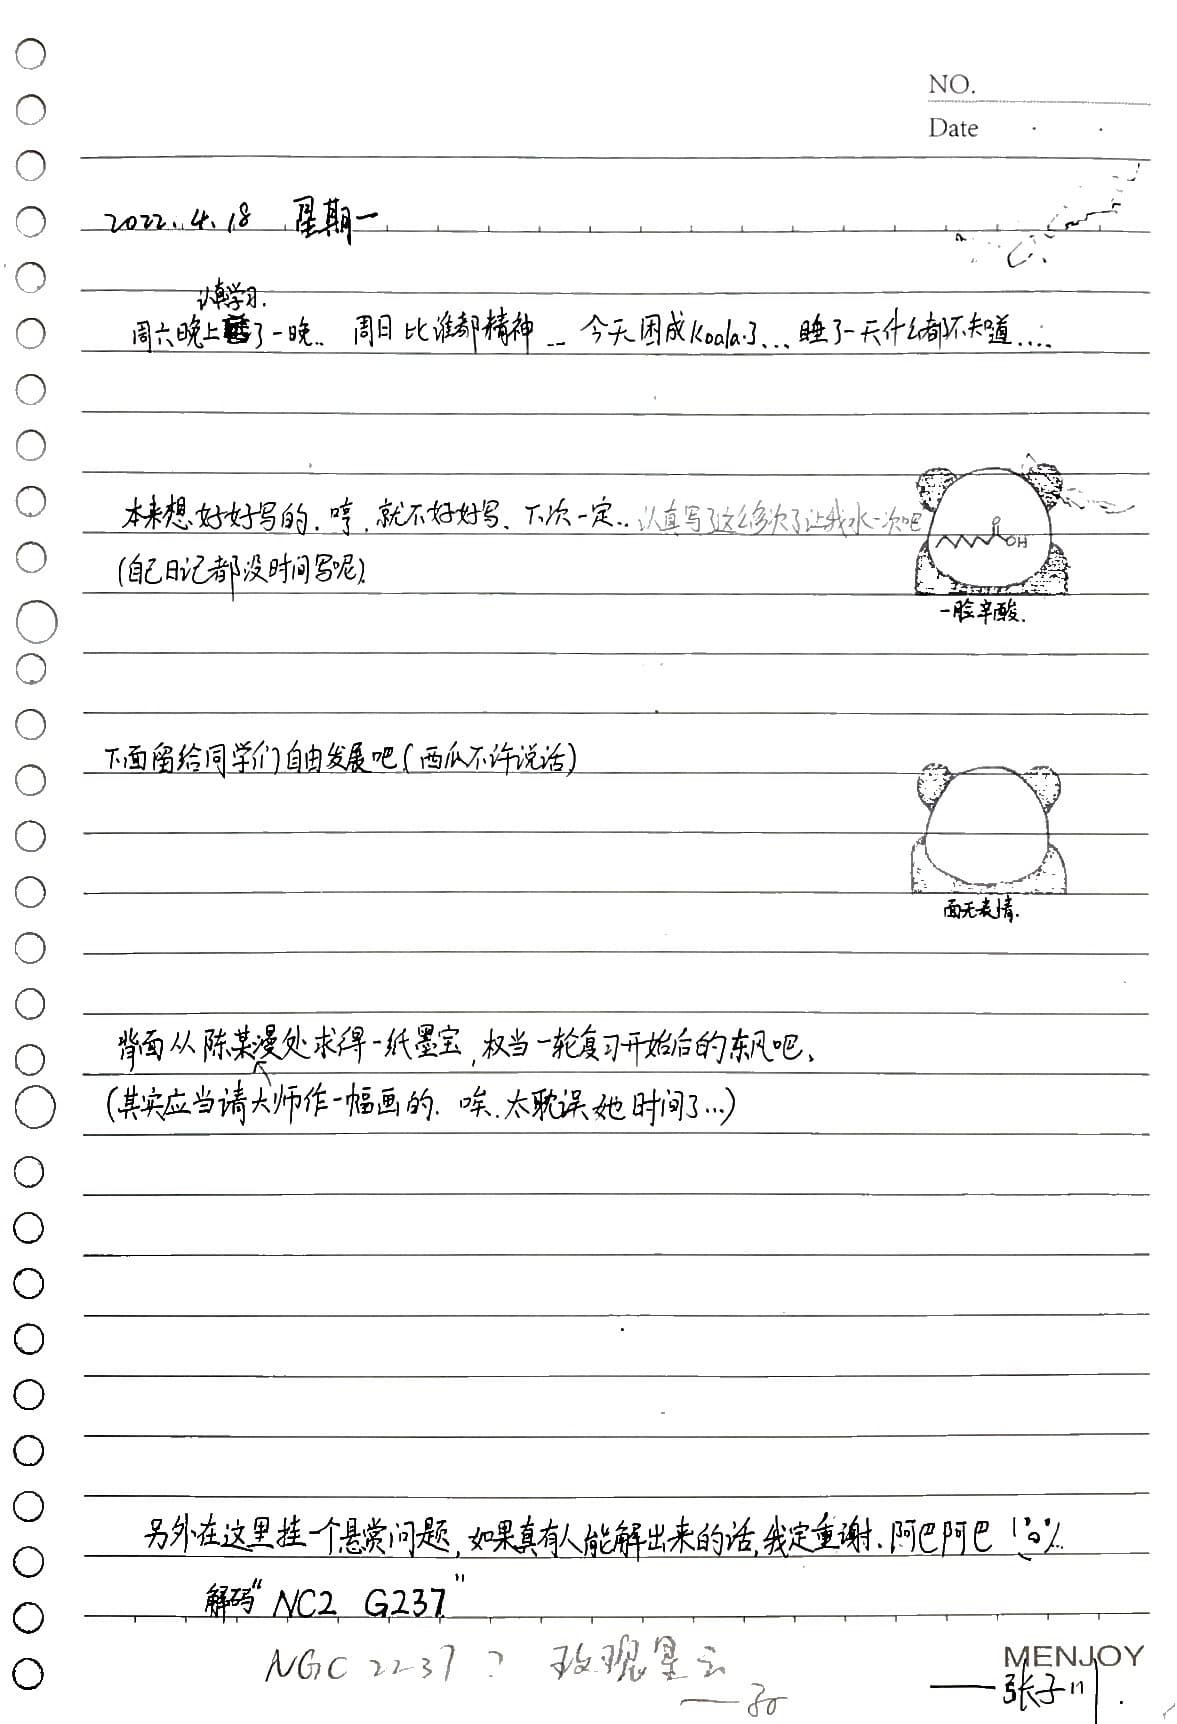 NO.
Date
2022.4.18 星期一
认真学习.
周六晚上了一晚.. 周日比谁都精神... 今天困成Koala了... 睡了一天什么都不知道....
本来想好好写的.哼.就不好好写、下次一定.. 认真写了这么多次了让我水一次吧
OH
(自己日记都没时间写呢)
一脸辛酸.
下面留给同学们自由发展吧(西瓜不许说话)
面无表情.
背面从陈某漫处求得一纸墨宝,权当一轮复习开始后的东风吧、
(其实应当请大师作一幅画的.唉.太耽误她时间了...)
另外在这里挂一个悬赏问题,如果真有人能解出来的话,我定重谢.阿巴阿巴
解码“NC2 G237”
NGC 2237? 玫瑰星云
MENJOY
——张子川.